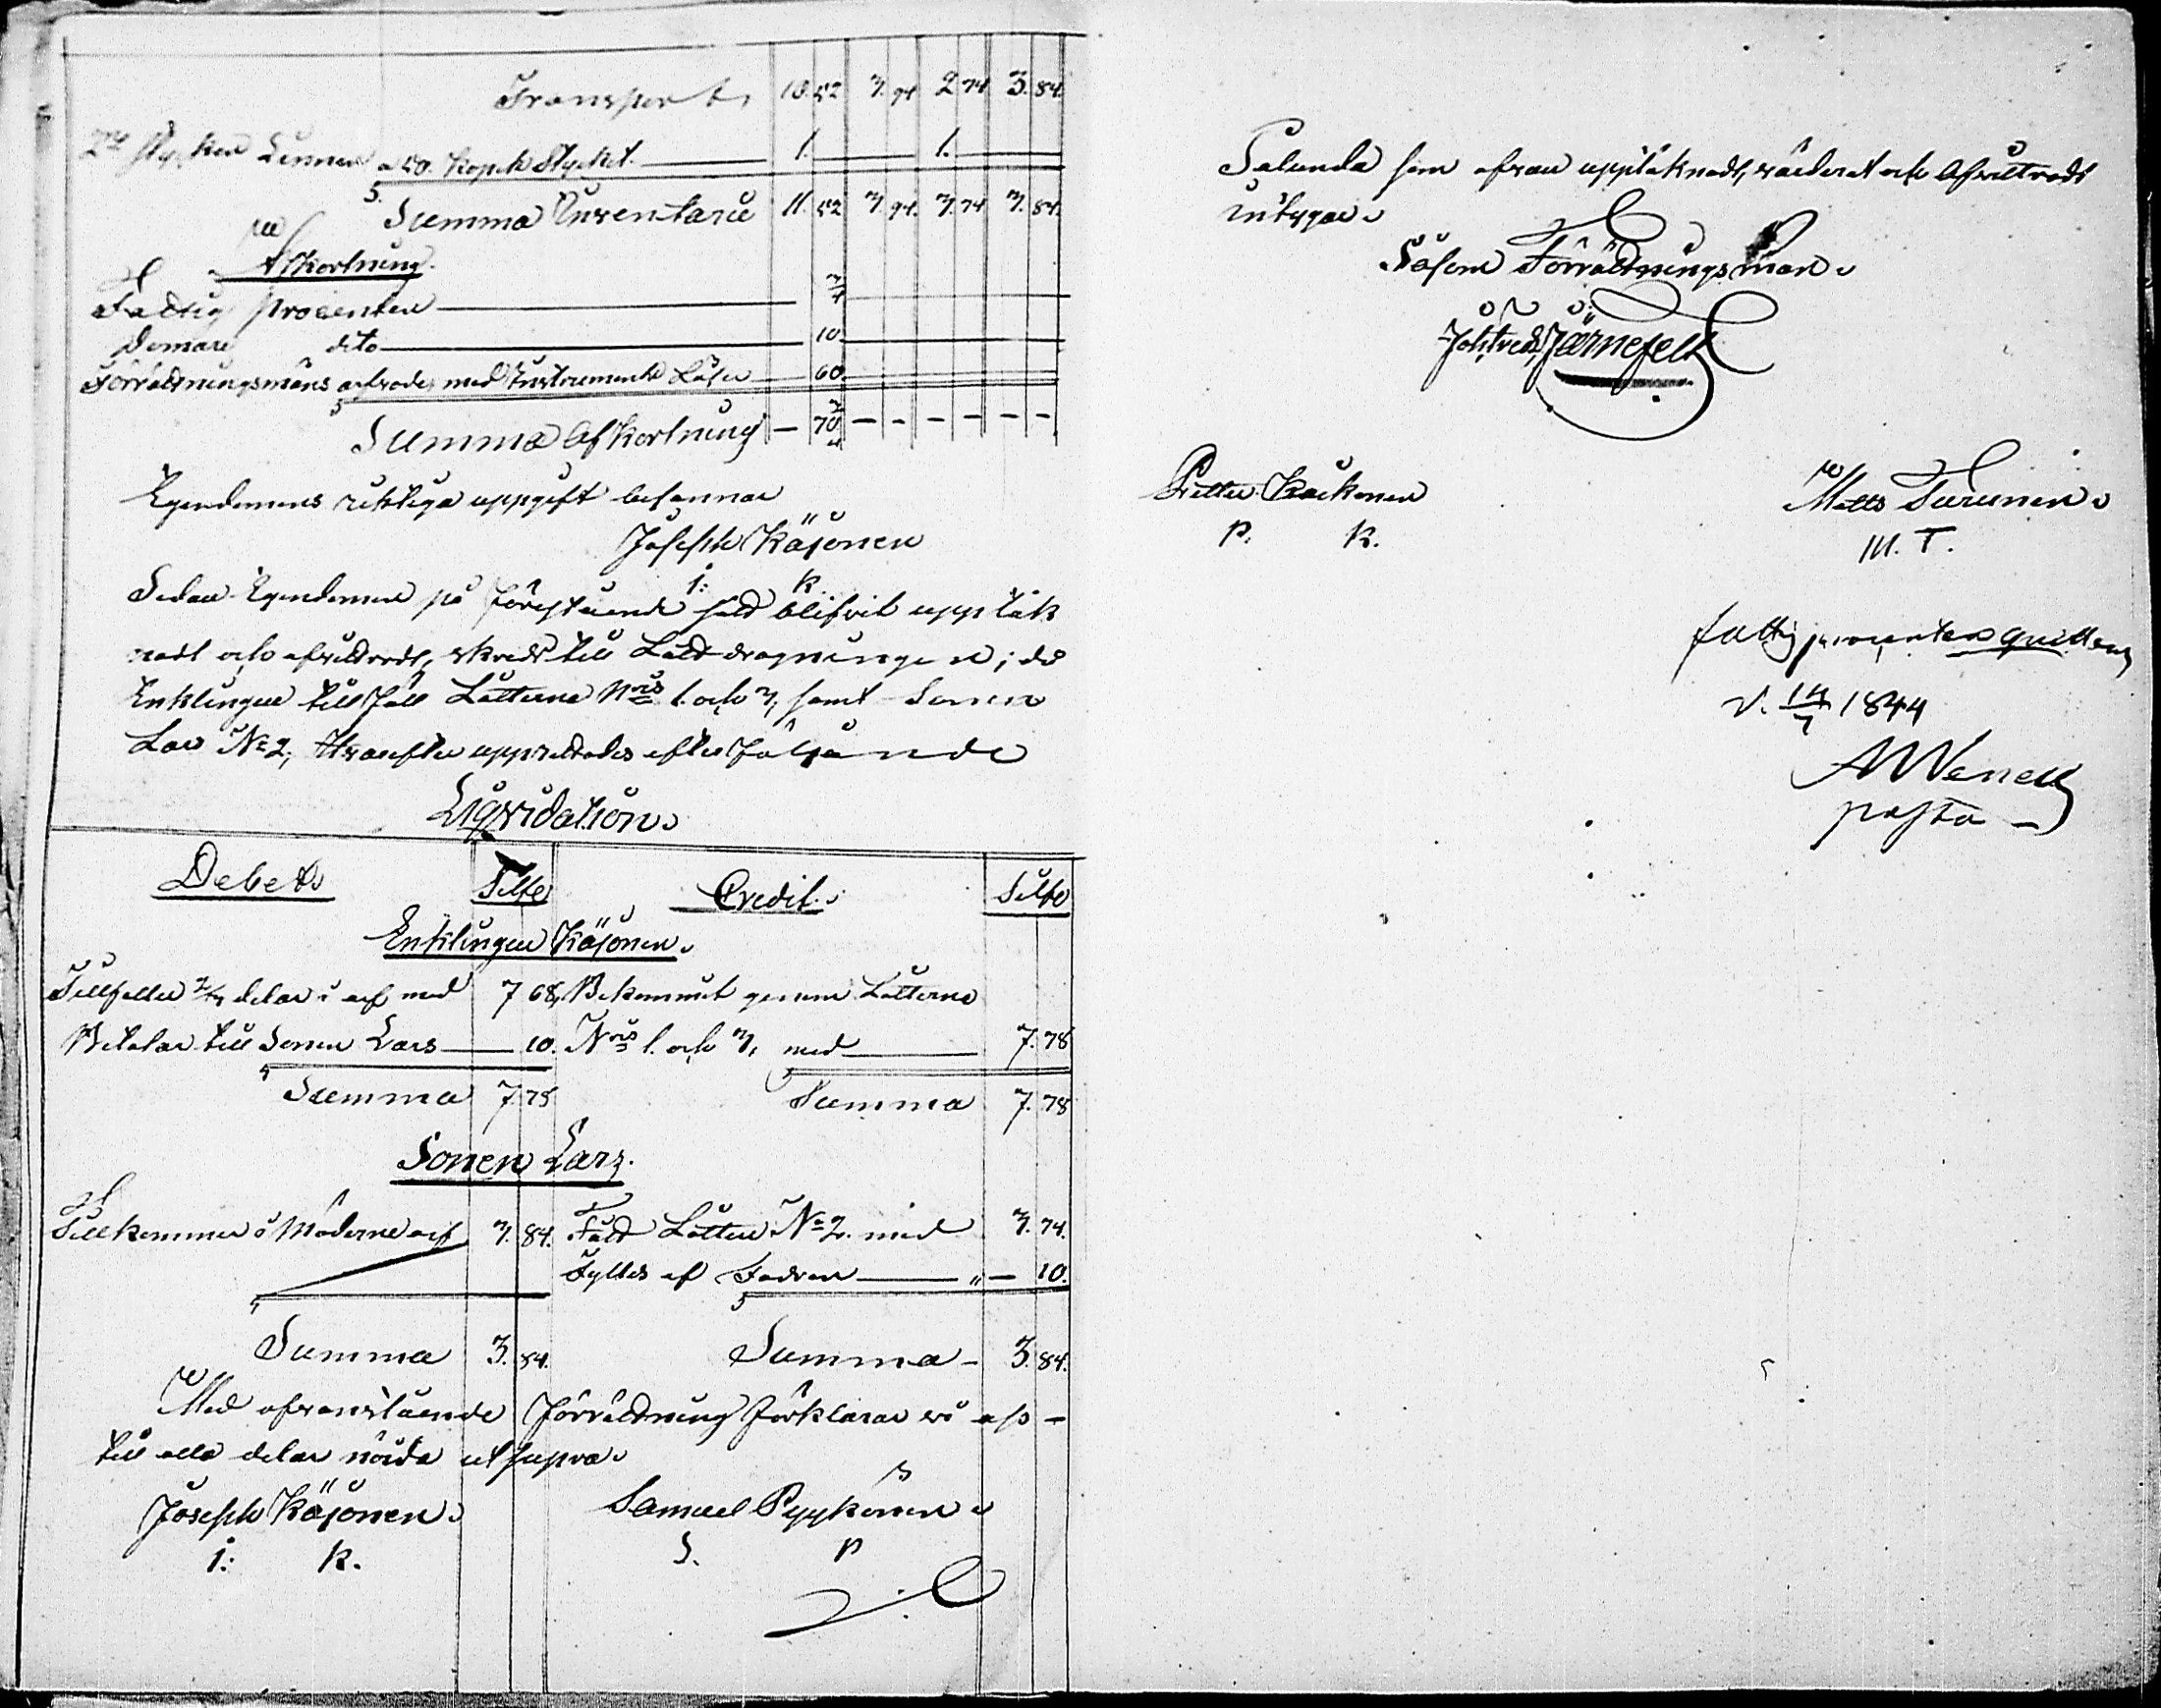 Transport, 10. 52 3. 94 2 74 3. 84.
2ne stycken Linnen a 50. Kopek Stycket. 1. 1.
Summa Inventarii 11. 52 3. 94. 3. 74 3. 84.
Afkortning.
Fattig procenten 3/4
Domare dito 10.
Förrättningsmäns arfvode, med Instrumente Lösen 60.
Summa Afkortning — 70 3/4 — — — — — —
Egendomens riktiga uppgift besannar
Joseph Käjonen
I: K.
Sedan Egendomen på föreståendе sätt blifvit uppták
nadt och afvittradt, skreds till Lottdragningen; då
Enklingen tillföll Lotterne Nris 1. och 3, samt Sonen
Lars No 2; Hvarefter upprättades efterföljande
Liqvidation.
Debet. Silfv Credit. Silfv
Enklingen Käjonen.
Tillfaller 2/3 delar i arf med 7 68, Bekommit genom Lotterne
Betalar till Sonen Lars 10. Nris 1. och 3, med 7. 78
Summa 7. 78 Summa 7. 78
Sonen Lars.
Tillkommer i Möderne arf 3. 84. Fådt Lotten No 2. med 3. 74.
Fylles af Fadren " — 10.
Summa 3. 84. Summa 3. 84.
Med ofvanstående förrättning förklarar vi oss
till alla delar nöida ut supra.
Joseph Käjonen. Samuel Pyykönen
I: K. S. P
Salunda som ofvan upptäknadt, värderat och Afvittradt
intygar.
Såsom Förrättnings man.
Järnefelt
Petter Kaikonen Matts Turunen.
P. K. M. T.
fattigprocenten quitteras
d. 14/7 1844
A Wenell
pastor